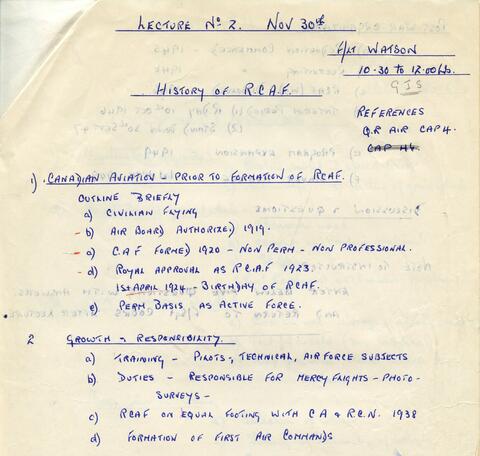 LECTURE No 2. NOV 30th
F/LT WATSON
10.30 to 12.00 hrs.
GIS
HISTORY OF R.C.A.F.
REFERENCES
Q.R AIR CAP 4.
CAP 44
1) CANADIAN AVIATION PRIOR TO FORMATION OF RCAF.
OUTLINE BRIEFLY
a) CIVILIAN FLYING
b) AIR BOARD AUTHORIZED 1919.
c) C.A F FORMED 1920 - NON PERM - NON PROFESSIONAL.
d) ROYAL APPROVAL AS R.C.A.F 1923
1st APRIL 1924 - BIRTHDAY OF RCAF.
e) PERM BASIS AS ACTIVE FORCE.
2 GROWTH & RESPONSIBILITY.
a) TRAINING - PILOTS, TECHNICAL, AIR FORCE SUBJECTS
b) DUTIES - RESPONSIBLE FOR MERCY FLIGHTS - PHOTO-
SURVEYS -
c) RCAF ON EQUAL FOOTING WITH C A & R.C.N. 1938
d) FORMATION OF FIRST AIR COMMANDS